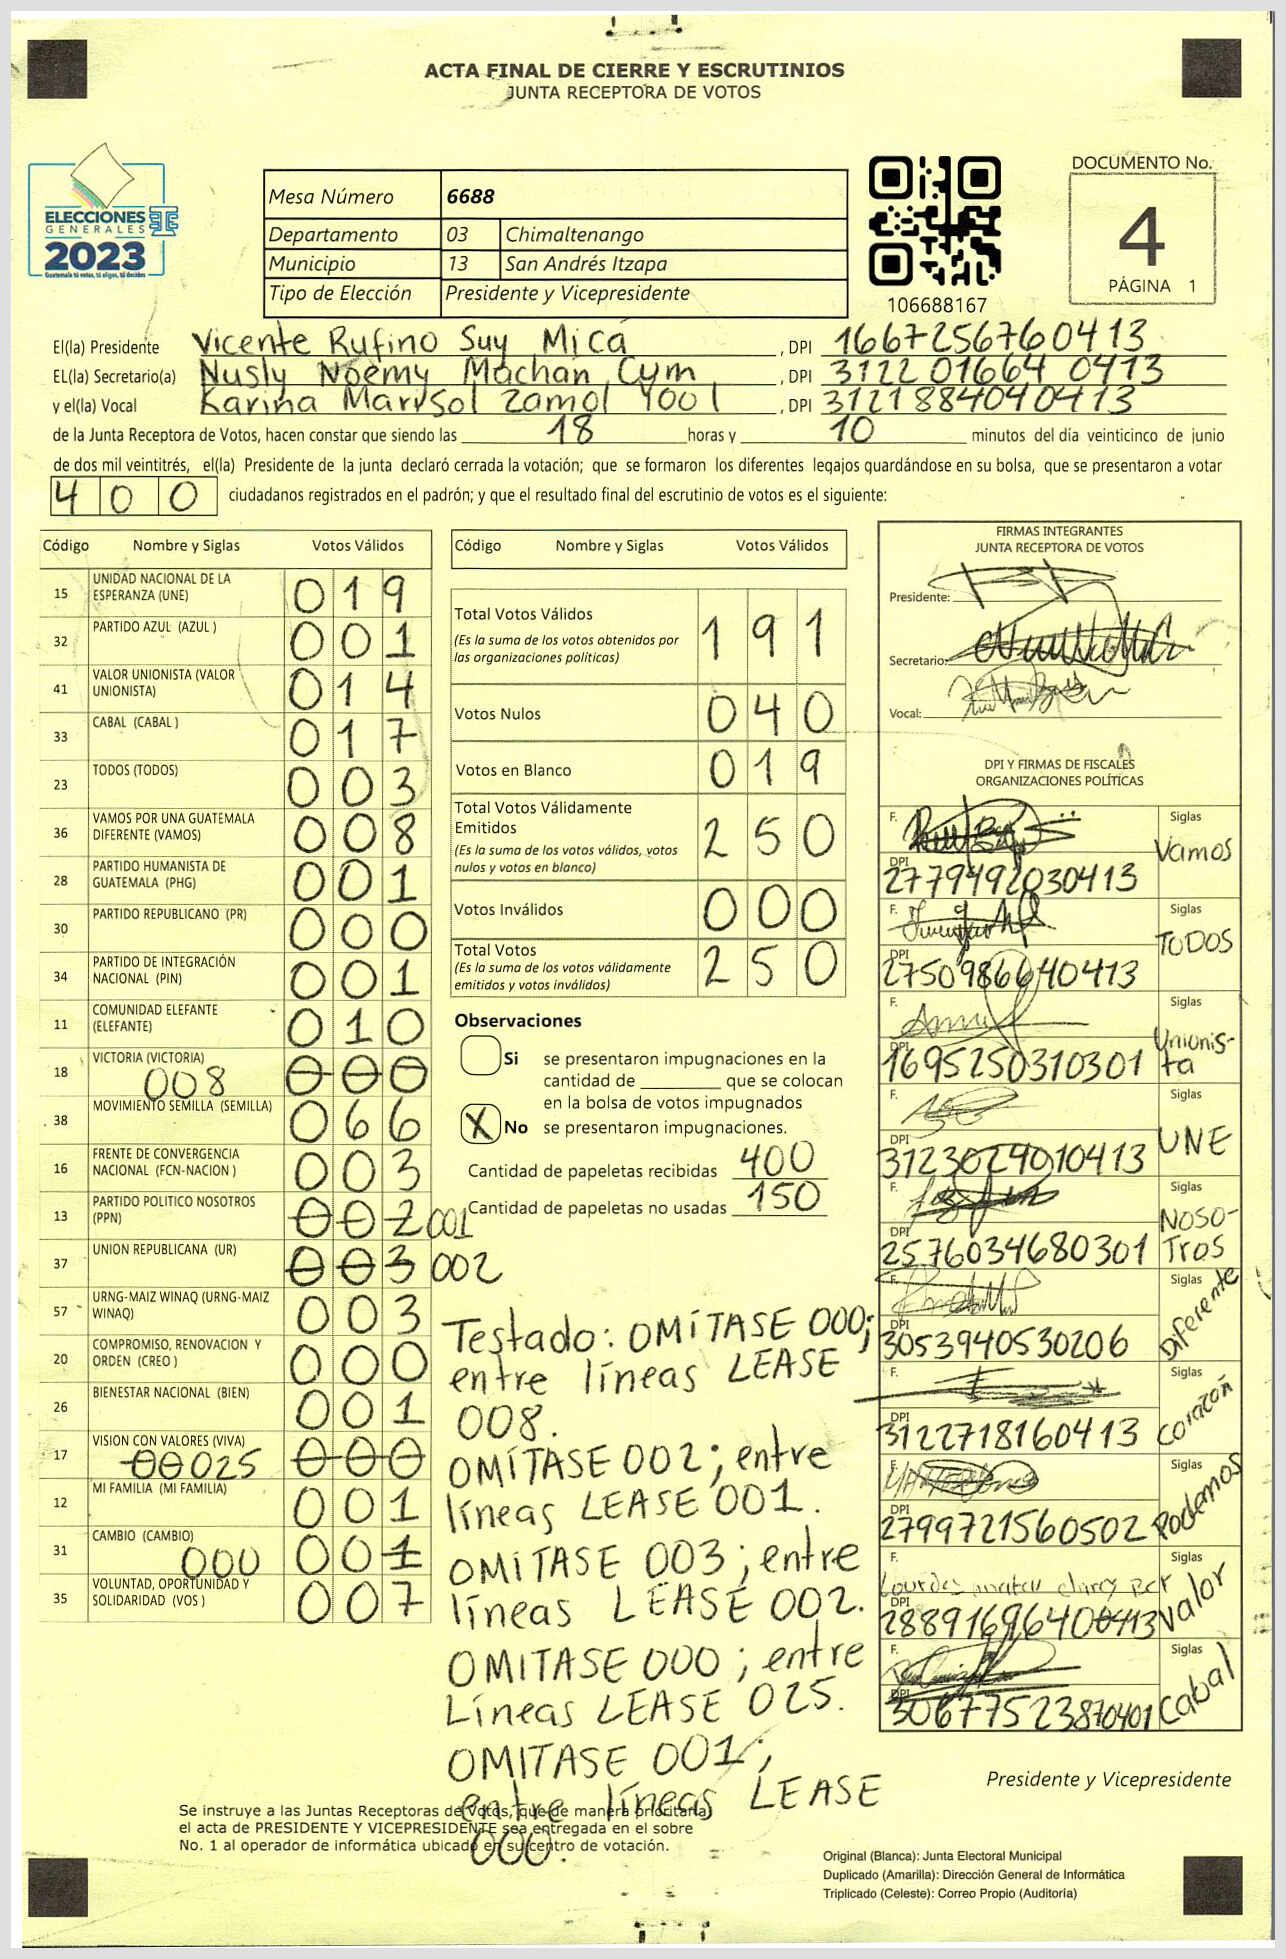 ACTA FINAL DE CIERRE Y ESCRUTINIOS
JUNTA RECEPTORA DE VOTOS
ELECCIONES
GENERALES
2023
Guatemala tú votas, tú eliges, tú decides
Mesa Número 6688
Departamento 03 Chimaltenango
Municipio 13 San Andrés Itzapa
Tipo de Elección Presidente y Vicepresidente
106688167
DOCUMENTO No.
4
PÁGINA 1
El(la) Presidente Vicente Rufino Suy Micá , DPI 1667256760413
EL(la) Secretario(a) Nusly Noemy Machán Cum , DPI 3122 01664 0413
y el(la) Vocal Karina Marisol Zamol Yool , DPI 3121884040413
de la Junta Receptora de Votos, hacen constar que siendo las 18 horas y 10 minutos del día veinticinco de junio
de dos mil veintitrés, el(la) Presidente de la junta declaró cerrada la votación; que se formaron los diferentes legajos guardándose en su bolsa, que se presentaron a votar
400 ciudadanos registrados en el padrón; y que el resultado final del escrutinio de votos es el siguiente:
Código Nombre y Siglas Votos Válidos
15 UNIDAD NACIONAL DE LA ESPERANZA (UNE) 019
32 PARTIDO AZUL (AZUL ) 001
41 VALOR UNIONISTA (VALOR UNIONISTA) 014
33 CABAL (CABAL ) 017
23 TODOS (TODOS) 003
36 VAMOS POR UNA GUATEMALA DIFERENTE (VAMOS) 008
28 PARTIDO HUMANISTA DE GUATEMALA (PHG) 001
30 PARTIDO REPUBLICANO (PR) 000
34 PARTIDO DE INTEGRACIÓN NACIONAL (PIN) 001
11 COMUNIDAD ELEFANTE (ELEFANTE) 010
18 VICTORIA (VICTORIA) 008 000
38 MOVIMIENTO SEMILLA (SEMILLA) 066
16 FRENTE DE CONVERGENCIA NACIONAL (FCN-NACION ) 003
13 PARTIDO POLITICO NOSOTROS (PPN) 002 001
37 UNION REPUBLICANA (UR) 003 002
57 URNG-MAIZ WINAQ (URNG-MAIZ WINAQ) 003
20 COMPROMISO, RENOVACION Y ORDEN (CREO ) 000
26 BIENESTAR NACIONAL (BIEN) 001
17 VISION CON VALORES (VIVA) 00 025 000
12 MI FAMILIA (MI FAMILIA) 001
31 CAMBIO (CAMBIO) 000 001
35 VOLUNTAD, OPORTUNIDAD Y SOLIDARIDAD (VOS ) 007
Código Nombre y Siglas Votos Válidos
Total Votos Válidos 191
(Es la suma de los votos obtenidos por
las organizaciones políticas)
Votos Nulos 040
Votos en Blanco 019
Total Votos Válidamente
Emitidos 250
(Es la suma de los votos válidos, votos
nulos y votos en blanco)
Votos Inválidos 000
Total Votos 250
(Es la suma de los votos válidamente
emitidos y votos inválidos)
Observaciones
Si se presentaron impugnaciones en la
cantidad de ________ que se colocan
en la bolsa de votos impugnados
X No se presentaron impugnaciones.
Cantidad de papeletas recibidas 400
Cantidad de papeletas no usadas 150
Testado: OMÍTASE 000;
entre líneas LEASE
008.
OMÍTASE 002; entre
líneas LEASE 001.
OMITASE 003; entre
líneas LEASE 002.
OMITASE 000; entre
Líneas LEASE 025.
OMITASE 001;
entre líneas LEASE
000.
FIRMAS INTEGRANTES
JUNTA RECEPTORA DE VOTOS
Presidente:
Secretario:
Vocal:
DPI Y FIRMAS DE FISCALES
ORGANIZACIONES POLÍTICAS
F. Siglas
Vamos
DPI 2779492030413
F. Siglas
TODOS
DPI 2750986640413
F. Siglas
Unionis-
ta
DPI 1695250310301
F. Siglas
UNE
DPI 3123029010413
F. Siglas
NOSO-
Tros
DPI 2576034680301
F. Siglas
Diferente
DPI 3053940530206
F. Siglas
Corazón
DPI 3122718160413
F. Siglas
Podemos
DPI 2799721560502
F. Lourdes Siglas
Valor
DPI 28891696400413
F. Siglas
Cabal
DPI 30677523870401
Presidente y Vicepresidente
Se instruye a las Juntas Receptoras de Votos, que de manera prioritaria,
el acta de PRESIDENTE Y VICEPRESIDENTE sea entregada en el sobre
No. 1 al operador de informática ubicado en su centro de votación.
Original (Blanca): Junta Electoral Municipal
Duplicado (Amarilla): Dirección General de Informática
Triplicado (Celeste): Correo Propio (Auditoría)